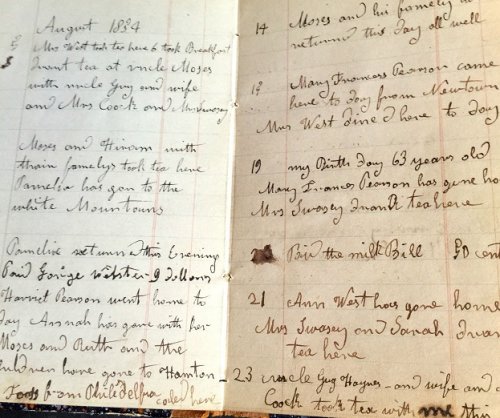 August 1884
5 Mrs West took tea here 6 took Breakfast
8 Drank tea at uncle Moses
with uncle Guy and wife
and Mrs Cock and Mrs Swasey
Moses and Hiram with
thair famelys took tea here
Pamelia has gon to the
white Mountains
Pamelia return'd this Evening
Paid George Webster 9 dollars
Harriet Pearson went home to
day Annah has gone with her
Moses and Ruth and the
children have gone to Hamton
from Philadelfia called here
14 Moses and his famely
returnd this day all well
17 Mary Frances Pearson came
here to day from Newtown
Mrs West dined here to day
19 my Birth day 63 years old
Mary Frances Pearson has gone home
Mrs Swasey drank tea here
Paid the milk Bill cent
21 Ann West has gone home
Mrs Swasey and Sarah
tea here
23 uncle Guy Haynes and wife and
Cock took tea with me this